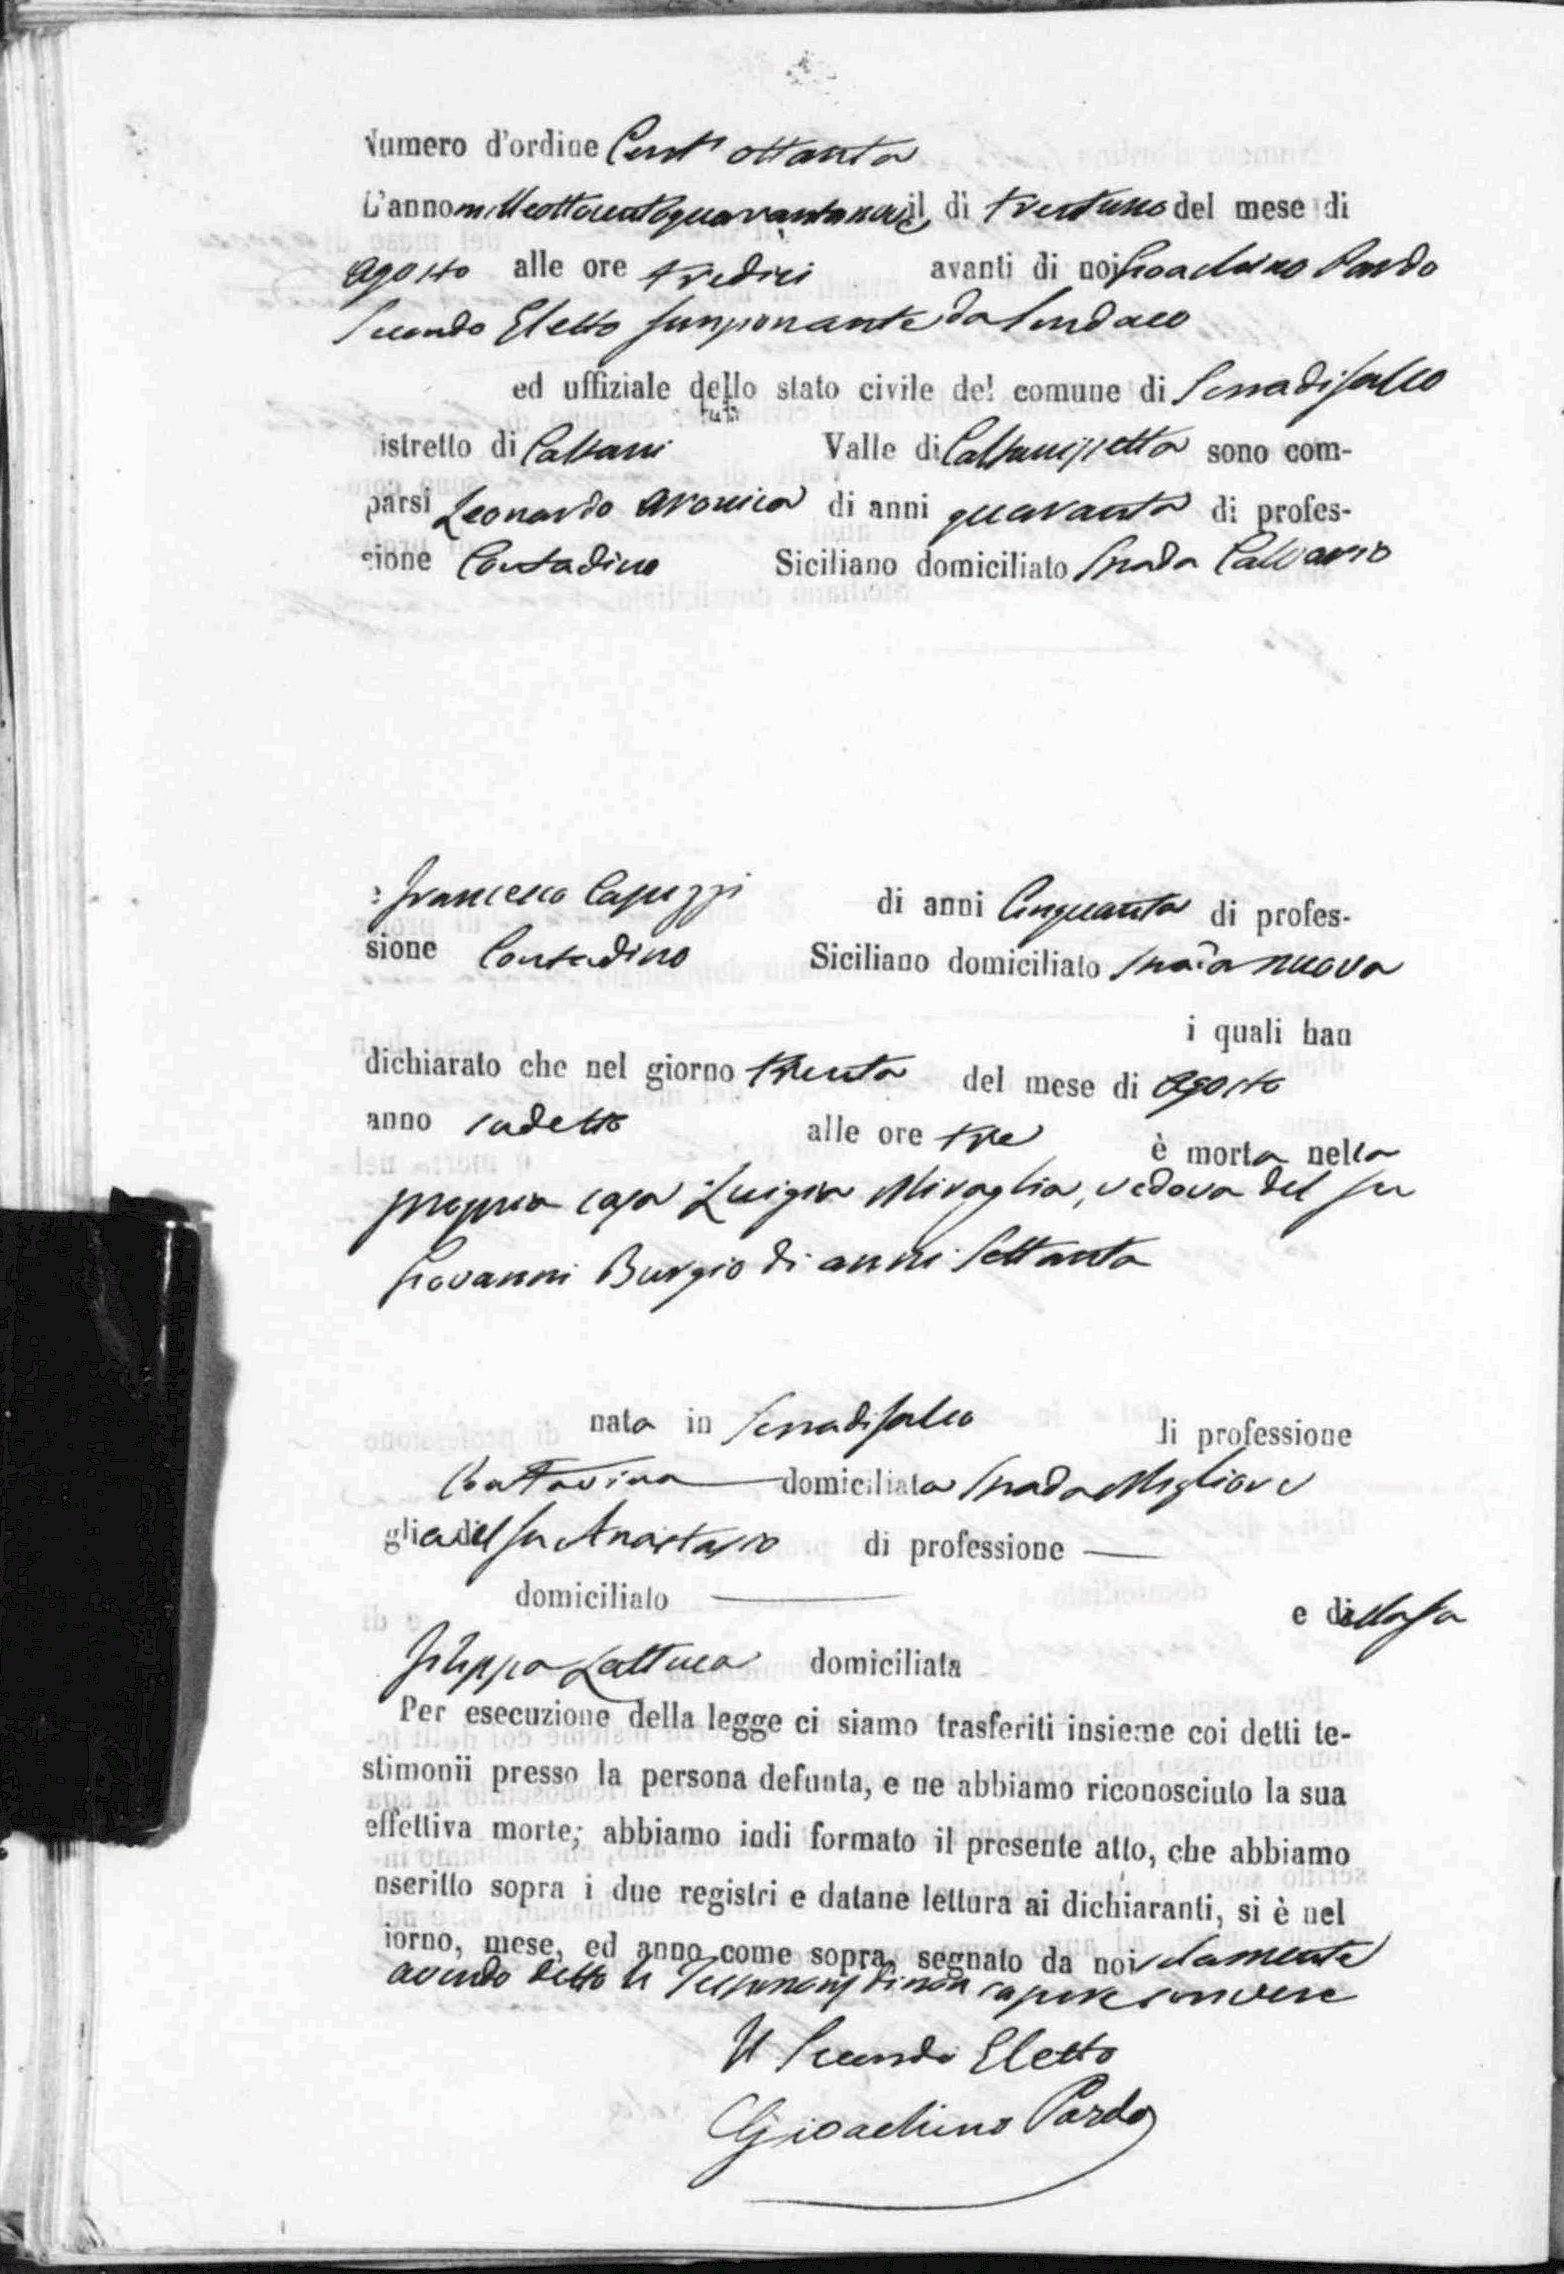 Numero d'ordine Cent'ottanta
L'anno milleottocentoquarantanove il di trentuno del mese di
Agosto alle ore tredici avanti di noi Gioachino Pardo
Secondo Eletto funzionante da Sindaco
ed uffiziale dello stato civile del comune di Serradifalco
istretto di Caltani Valle di Caltanissetta sono com-
parsi Leonardo Aronica di anni quaranta di profes-
sione Contadino Siciliano domiciliato Strada Calvario
e Francesco Capuzzi di anni Cinquanta di profes-
sione Contadino Siciliano domiciliato Strada nuova
i quali han
dichiarato che nel giorno trenta del mese di Agosto
anno sudetto alle ore tre è morta nella
propria casa Luigia Miraglia, vedova del fu
Giovanni Burgio di anni Settanta
nata in Serradifalco di professione
Contadina domiciliata Strada Migliore
glia del fu Anastasio di professione —
domiciliato — e della fu
Filippa Lattuca domiciliata
Per esecuzione della legge ci siamo trasferiti insieme coi detti te-
stimonii presso la persona defunta, e ne abbiamo riconosciuto la sua
effettiva morte; abbiamo indi formato il presente atto, che abbiamo
nscritto sopra i due registri e datane lettura ai dichiaranti, si è nel
iorno, mese, ed anno come sopra, segnato da noi
avendo detto li di non sapere scrivere
Il Secondo Eletto
Gioachino Pardo